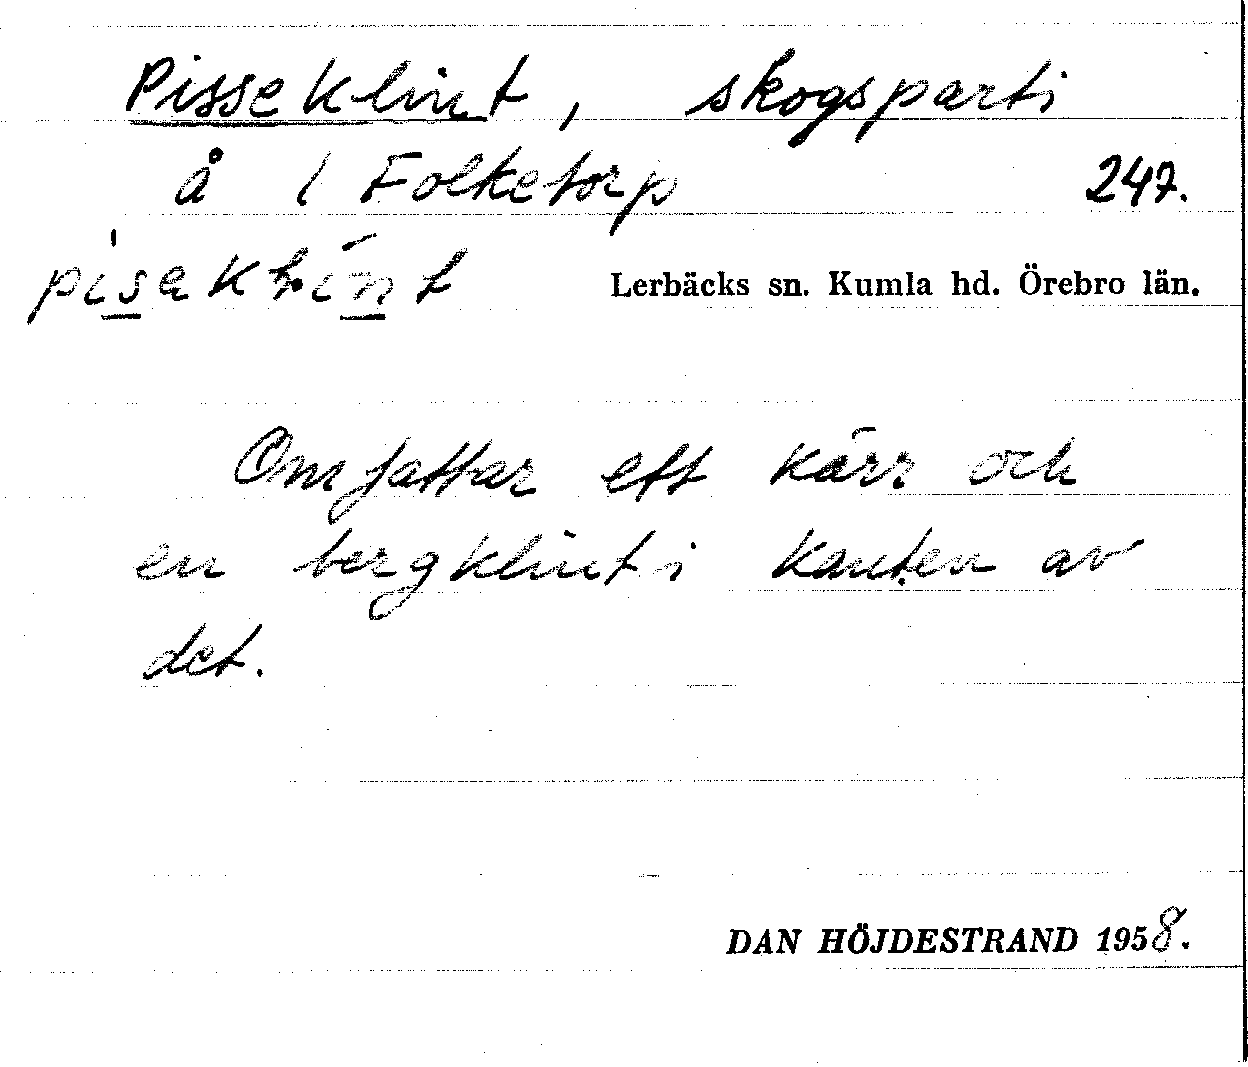 Pisseklint, skogsparti
å 1 Folketorp 247.
pisaklint Lerbäcks sn. Kumla hd. Örebro län.
Omfattar ett kärr och
en bergklint i kanten av
det.
DAN HÖJDESTRAND 1958.